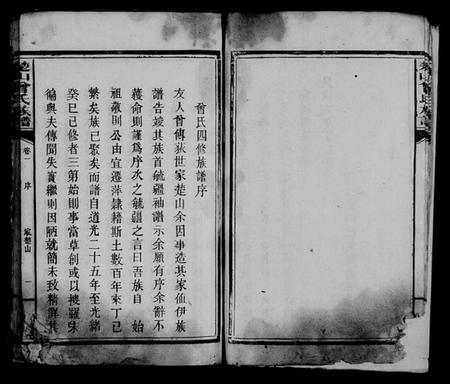 曾氏四修族譜序
友人曾傳荻世家楚山余因事造其家值伊族
譜告竣其族首毓疆袖譜示余願有序余辭不
獲命則謹為序次之毓疆之言曰吾族自 始
祖敬則公由宜遷萍隸籍斯土數百年來丁已
繁矣族已聚矣而譜自道光二十五年至光緒
癸巳已修者三第始則事當草創或以搜羅
徧與夫傳聞失實繼則因陋就簡未致精詳其
楚山曾氏族譜
卷一 序
家楚山
一